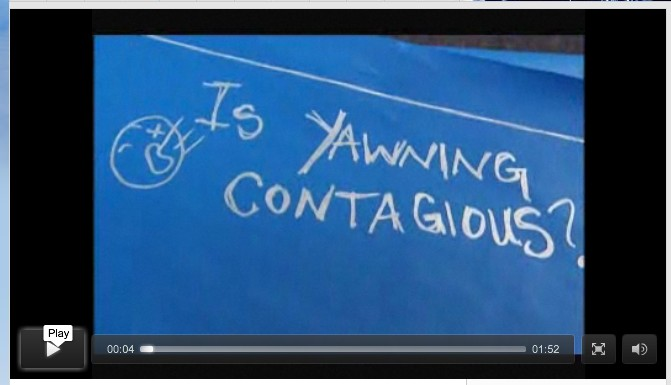 Is YAWNING
CONTAGIOUS?
Play
00:04
01:52